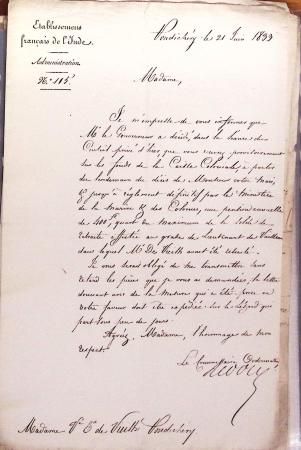 Etablissemens
français de l'Inde.
Administration
N.º 115.
Pondichéry le 21 Juin 1833
Madame,
Je m'empresse de vous informer que
Mr le Gouverneur a décidé, dans la séance du
Conseil privé d'hier que vous provisoirement
sur les fonds de la Caisse Coloniale, à partir
du lendemain du décès de Monsieur votre mari,
& jusqu'à règlement définitif par le Ministère
de la Marine & des Colonies, une pension annuelle
de 400f, quart du maximum de la solde de
retraite affectée au grade de Lieutenant de Vaisseau
dans lequel Mr De avait été retraité.
Je vous serai obligé de me transmettre sans
retard les pièces que je vous ai demandées, la lettre
donnant avis de la mesure qui a été prise en
votre faveur doit être expédiée sur le
part sous peu de jours.
Agréez, Madame, l'hommage de mon
respect.
Le Commissaire Ordonnateur
Madame Ve de Pondichéry